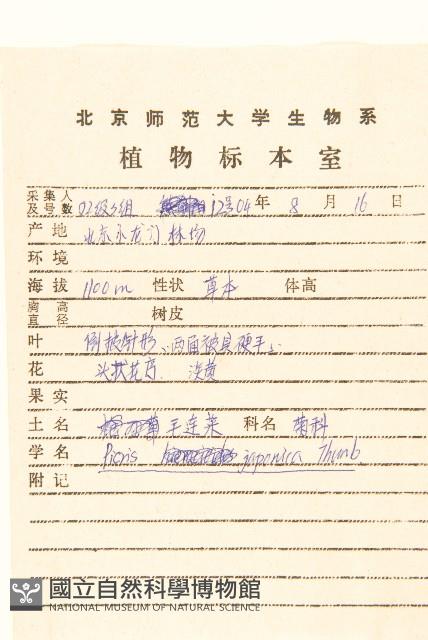 北京师范大学生物系
植物标本室
采集人及号数 02级3组 12号 04年 8月 16日
产地 北京小龙门林场
环境
海拔 1100m 性状 草本 体高
胸高直径 树皮
叶 倒披针形、两面被具硬毛
花 头状花序 淡黄
果实
土名 毛连菜 科名 菊科
学名 Picris japonica Thunb
附记
國立自然科學博物館
NATIONAL MUSEUM OF NATURAL SCIENCE